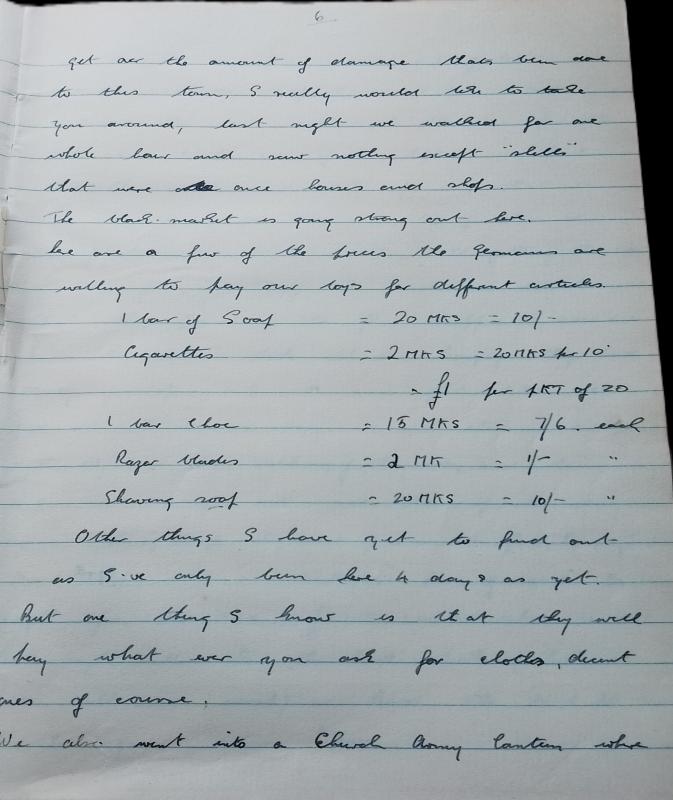 6
get over the amount of damage thats been done
to this town, I really would like to take
you around, last night we walked for one
whole hour and saw nothing except "shells"
that were once houses and shops.
The black-market is going strong out here.
here are a few of the prices the Germans are
willing to pay our boys for different articles.
1 bar of Soap = 20 MKS = 10/-
Cigarettes = 2 MKS = 20 MKS per 10
= £1 per PKT of 20
1 bar Choc = 15 MKS = 7/6. each
Razer blades = 2 MK = 1/- "
Shaving soap = 20 MKS = 10/- "
Other things I have yet to find out
as I've only been here 4 days as yet.
But one thing I know is that they will
pay what ever you ask for cloths, decent
ones of course.
We also went into a Church Army Canteen where